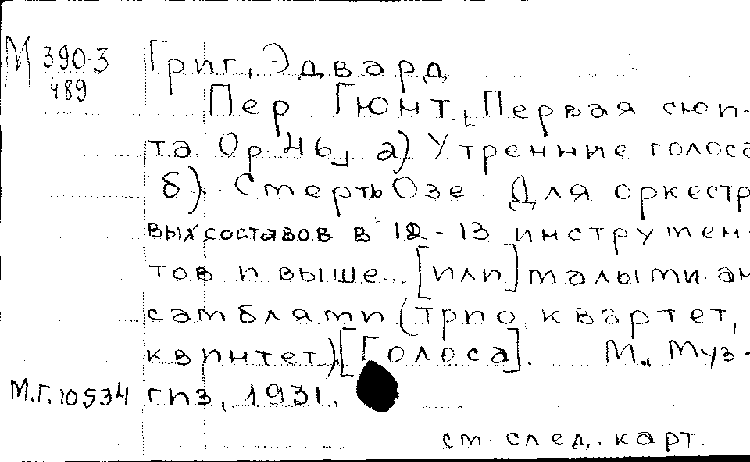 М 390·3 Григ, Эдвард
489
Пер Гюнт, Первая сюи-
та Ор 46, а) Утренние голоса
б). Смерть Озе. Для оркестр
вых составов в 12-13 инструмен-
тов и выше.. [или] малыми ан
самблями (трио, квартет,
квинтет) [Голоса]. М., Муз-
М.Г. 10534 гиз, 1931.
см. след. карт.